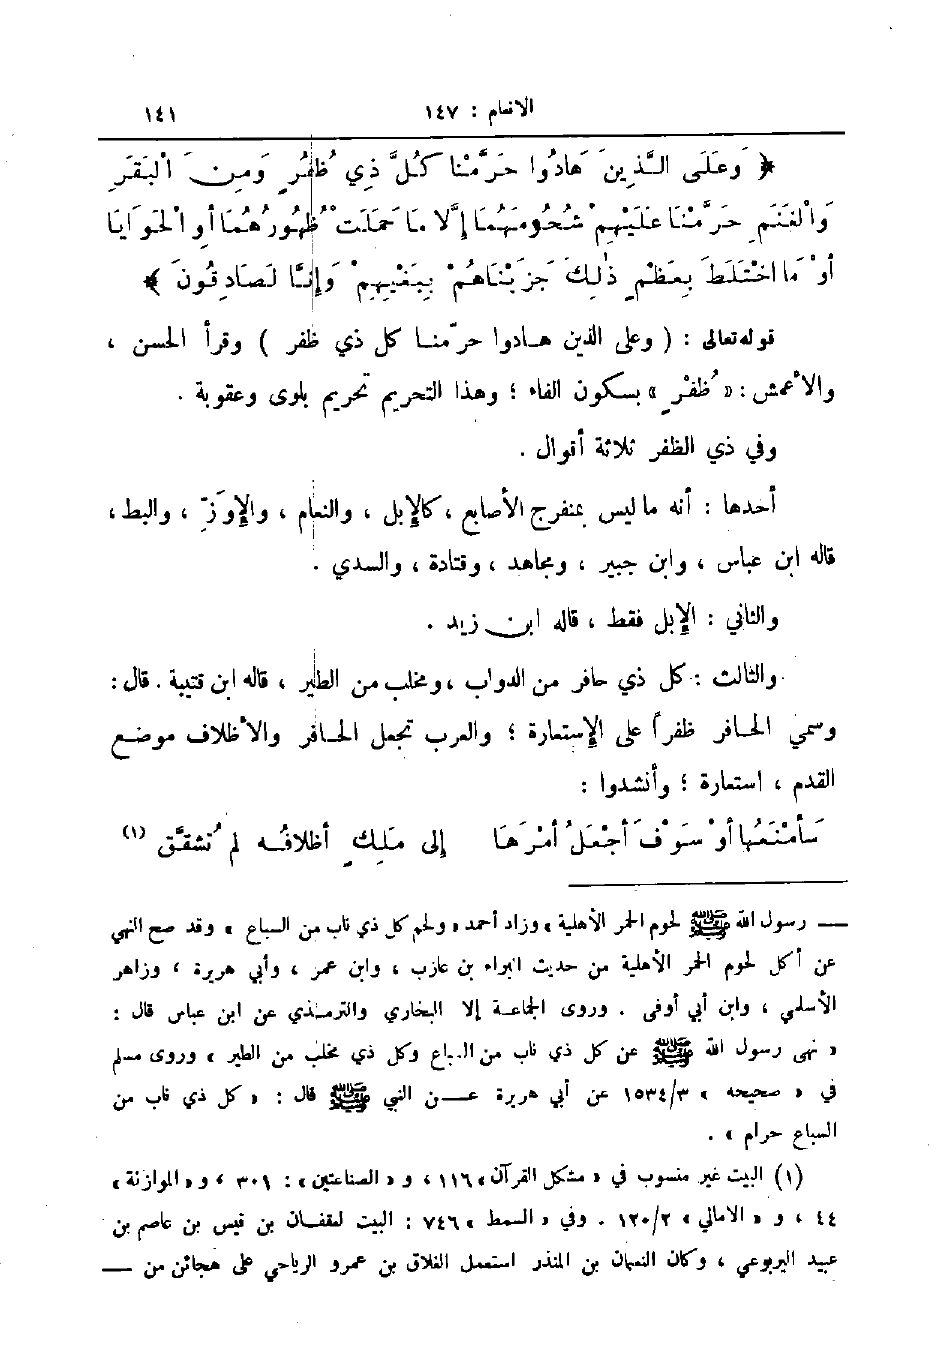 الانعام : ١٤٧ ١٤١
﴿ وَعَلَى الَّذِينَ هَادُوا حَرَّمْنَا كُلَّ ذِي ظُفُرٍ وَمِنَ الْبَقَرِ
وَالْغَنَمِ حَرَّمْنَا عَلَيْهِمْ شُحُومَهُمَا إِلَّا مَا حَمَلَتْ ظُهُورُهُمَا أَوِ الْحَوَايَا
أَوْ مَا اخْتَلَطَ بِعَظْمٍ ذٰلِكَ جَزَيْنَاهُمْ بِبَغْيِهِمْ وَإِنَّا لَصَادِقُونَ ﴾
قوله تعالى : ( وعلى الذين هادوا حرّمنا كل ذي ظفر ) وقرأ الحسن ،
والأعمش : « ظُفْرٍ » بسكون الفاء ؛ وهذا التحريم تحريم بلوى وعقوبة .
وفي ذي الظفر ثلاثة أقوال .
أحدها : أنه ما ليس بمنفرج الأصابع ، كالإبل ، والنعام ، والإوَزّ ، والبط ،
قاله ابن عباس ، وابن جبير ، ومجاهد ، وقتادة ، والسدي .
والثاني : الإبل فقط ، قاله ابن زيد .
والثالث : كل ذي حافر من الدواب ، ومخلب من الطير ، قاله ابن قتيبة . قال :
وسمي الحافر ظفراً على الإستعارة ؛ والعرب تجعل الحافر والأظلاف موضع
القدم ، استعارة ؛ وأنشدوا :
سَأَمْنَعُها أَوْ سَوْفَ أَجْعَلُ أَمْرَهَا إلى مَلِكٍ أظلافُه لم تُشقَّق (١)
— رسول الله ﷺ لحوم الحمر الأهلية » وزاد أحمد « ولحم كل ذي ناب من السباع » وقد صح النهي
عن أكل لحوم الحمر الأهلية من حديث البراء بن عازب ، وابن عمر ، وأبي هريرة ، وزاهر
الأسلمي ، وابن أبي أوفى . وروى الجماعة إلا البخاري والترمذي عن ابن عباس قال :
« نهى رسول الله ﷺ عن كل ذي ناب من السباع وكل ذي مخلب من الطير » وروى مسلم
في « صحيحه » ١٥٣٤/٣ عن أبي هريرة عن النبي ﷺ قال : « كل ذي ناب من
السباع حرام » .
(١) البيت غير منسوب في « مشكل القرآن » ١١٦ ، و « الصناعتين » : ٣٠١ ، و « الموازنة »
٤٤ ، و « الامالي » ١٢٠/٢ . وفي « السمط » ٧٤٦ : البيت لعقفان بن قيس بن عاصم بن
عبيد اليربوعي ، وكان النعمان بن المنذر استعمل الغلاق بن عمرو الرياحي على هجائن من —